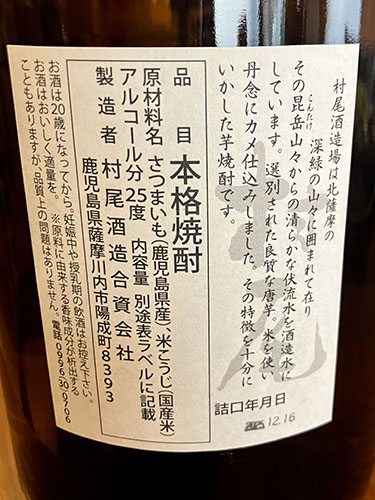 村尾酒造場は北薩摩の
深緑の山々に囲まれて在り
こんたけ
その昆岳山々からの清らかな伏流水を酒造水に
しています。選別された良質な唐芋。米を使い
丹念にカメ仕込みしました。その特徴を十分に
いかした芋焼酎です。
詰口年月日
12.16
品目 本格焼酎
原材料名 さつまいも(鹿児島県産)、米こうじ(国産米)
アルコール分 25度 内容量 別途表ラベルに記載
製造者 村尾酒造合資会社
鹿児島県薩摩川内市陽成町8393
お酒は20歳になってから。妊娠中や授乳期の飲酒はお控え下さい。
お酒はおいしく適量を。 ※原料に由来する香味成分が析出する
こともありますが、品質上の問題はありません。電話0996-30-0706